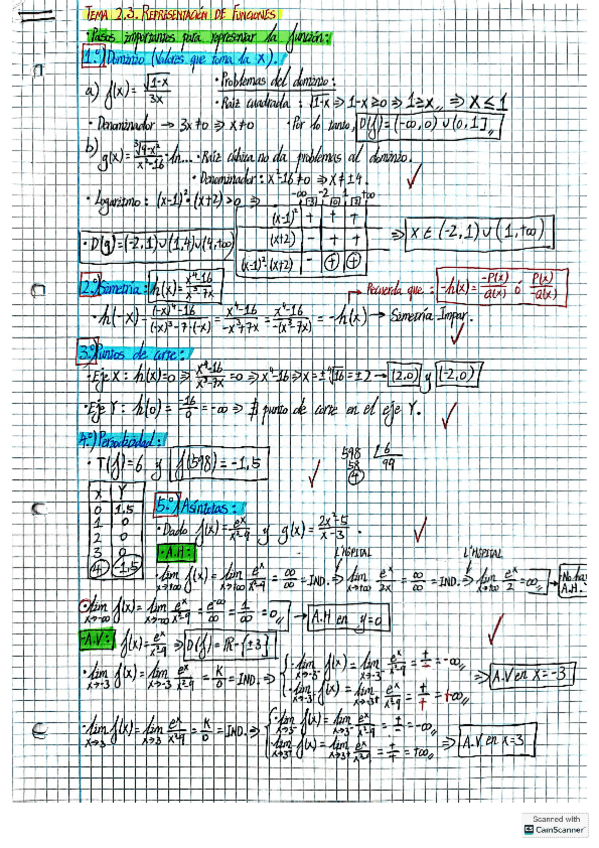 TEMA 2.3. REPRESENTACIÓN DE FUNCIONES
· Pasos importantes para representar la función:
1.º) Dominio (Valores que toma la X).
a) f(x) = √(1-x) / 3x · Problemas del dominio:
· Raíz cuadrada: √(1-x) ⇒ 1-x ≥ 0 ⇒ 1 ≥ x ⇒ x ≤ 1
· Denominador → 3x ≠ 0 ⇒ x ≠ 0 · Por lo tanto, D(f) = (-∞, 0) ∪ (0, 1]
b) g(x) = ∛(4-x²) / (x²-16) · ln... · Raíz cúbica no da problemas al dominio.
· Denominador: x²-16 ≠ 0 ⇒ x ≠ ±4.
· Logaritmo: (x-1)² · (x+2) > 0 ⇒ -∞ -2 1 +∞
(x-1)² + + +
(x+2) - + +
(x-1)²·(x+2) - + +
⇒ x ∈ (-2, 1) ∪ (1, +∞)
· D(g) = (-2, 1) ∪ (1, 4) ∪ (4, +∞)
2.º) Simetría: h(x) = (x⁴-16) / (x³-7x)
Recuerda que: -h(x) = -P(x)/Q(x) ó P(x)/-Q(x)
· h(-x) = ((-x)⁴-16) / ((-x)³-7·(-x)) = (x⁴-16) / (-x³+7x) = (x⁴-16) / -(x³-7x) = -h(x) → Simetría Impar.
3.º) Puntos de corte:
· Eje X: h(x) = 0 ⇒ (x⁴-16) / (x³-7x) = 0 ⇒ x⁴-16 ⇒ x = ±⁴√16 = ±2 → (2,0) y (-2,0)
· Eje Y: h(0) = -16/0 = -∞ ⇒ ∄ punto de corte en el eje Y.
4.º) Periodicidad:
· T(f) = 6 y f(598) = -1,5
598 | 6
58 99
4
X Y
0 1,5
1 0
2 0
3 0
4 -1,5
5.º) Asíntotas:
· Dado f(x) = eˣ / (x²-9) y g(x) = (2x²-5) / (x-3).
· A.H:
L'HÔPITAL L'HÔPITAL
· lim x→+∞ f(x) = lim x→+∞ eˣ / (x²-9) = ∞/∞ = IND. ⇒ lim x→+∞ eˣ / 2x = ∞/∞ = IND. ⇒ lim x→+∞ eˣ / 2 = ∞ → No hay A.H.
· lim x→-∞ f(x) = lim x→-∞ eˣ / (x²-9) = e^(-∞) / ∞ = 1/∞ = 0 → A.H en y=0
· A.V: f(x) = eˣ / (x²-9) ⇒ D(f) = ℝ - {±3}
· lim x→-3 f(x) = lim x→-3 eˣ / (x²-9) = K/0 = IND. ⇒
· lim x→-3⁻ f(x) = lim x→-3⁻ eˣ / (x²-9) = +/- = -∞
· lim x→-3⁺ f(x) = lim x→-3⁺ eˣ / (x²-9) = +/+ = +∞
⇒ A.V en x=-3
· lim x→3 f(x) = lim x→3 eˣ / (x²-9) = K/0 = IND. ⇒
· lim x→3⁻ f(x) = lim x→3⁻ eˣ / (x²-9) = +/- = -∞
· lim x→3⁺ f(x) = lim x→3⁺ eˣ / (x²-9) = +/+ = +∞
⇒ A.V en x=3
Scanned with
CamScanner